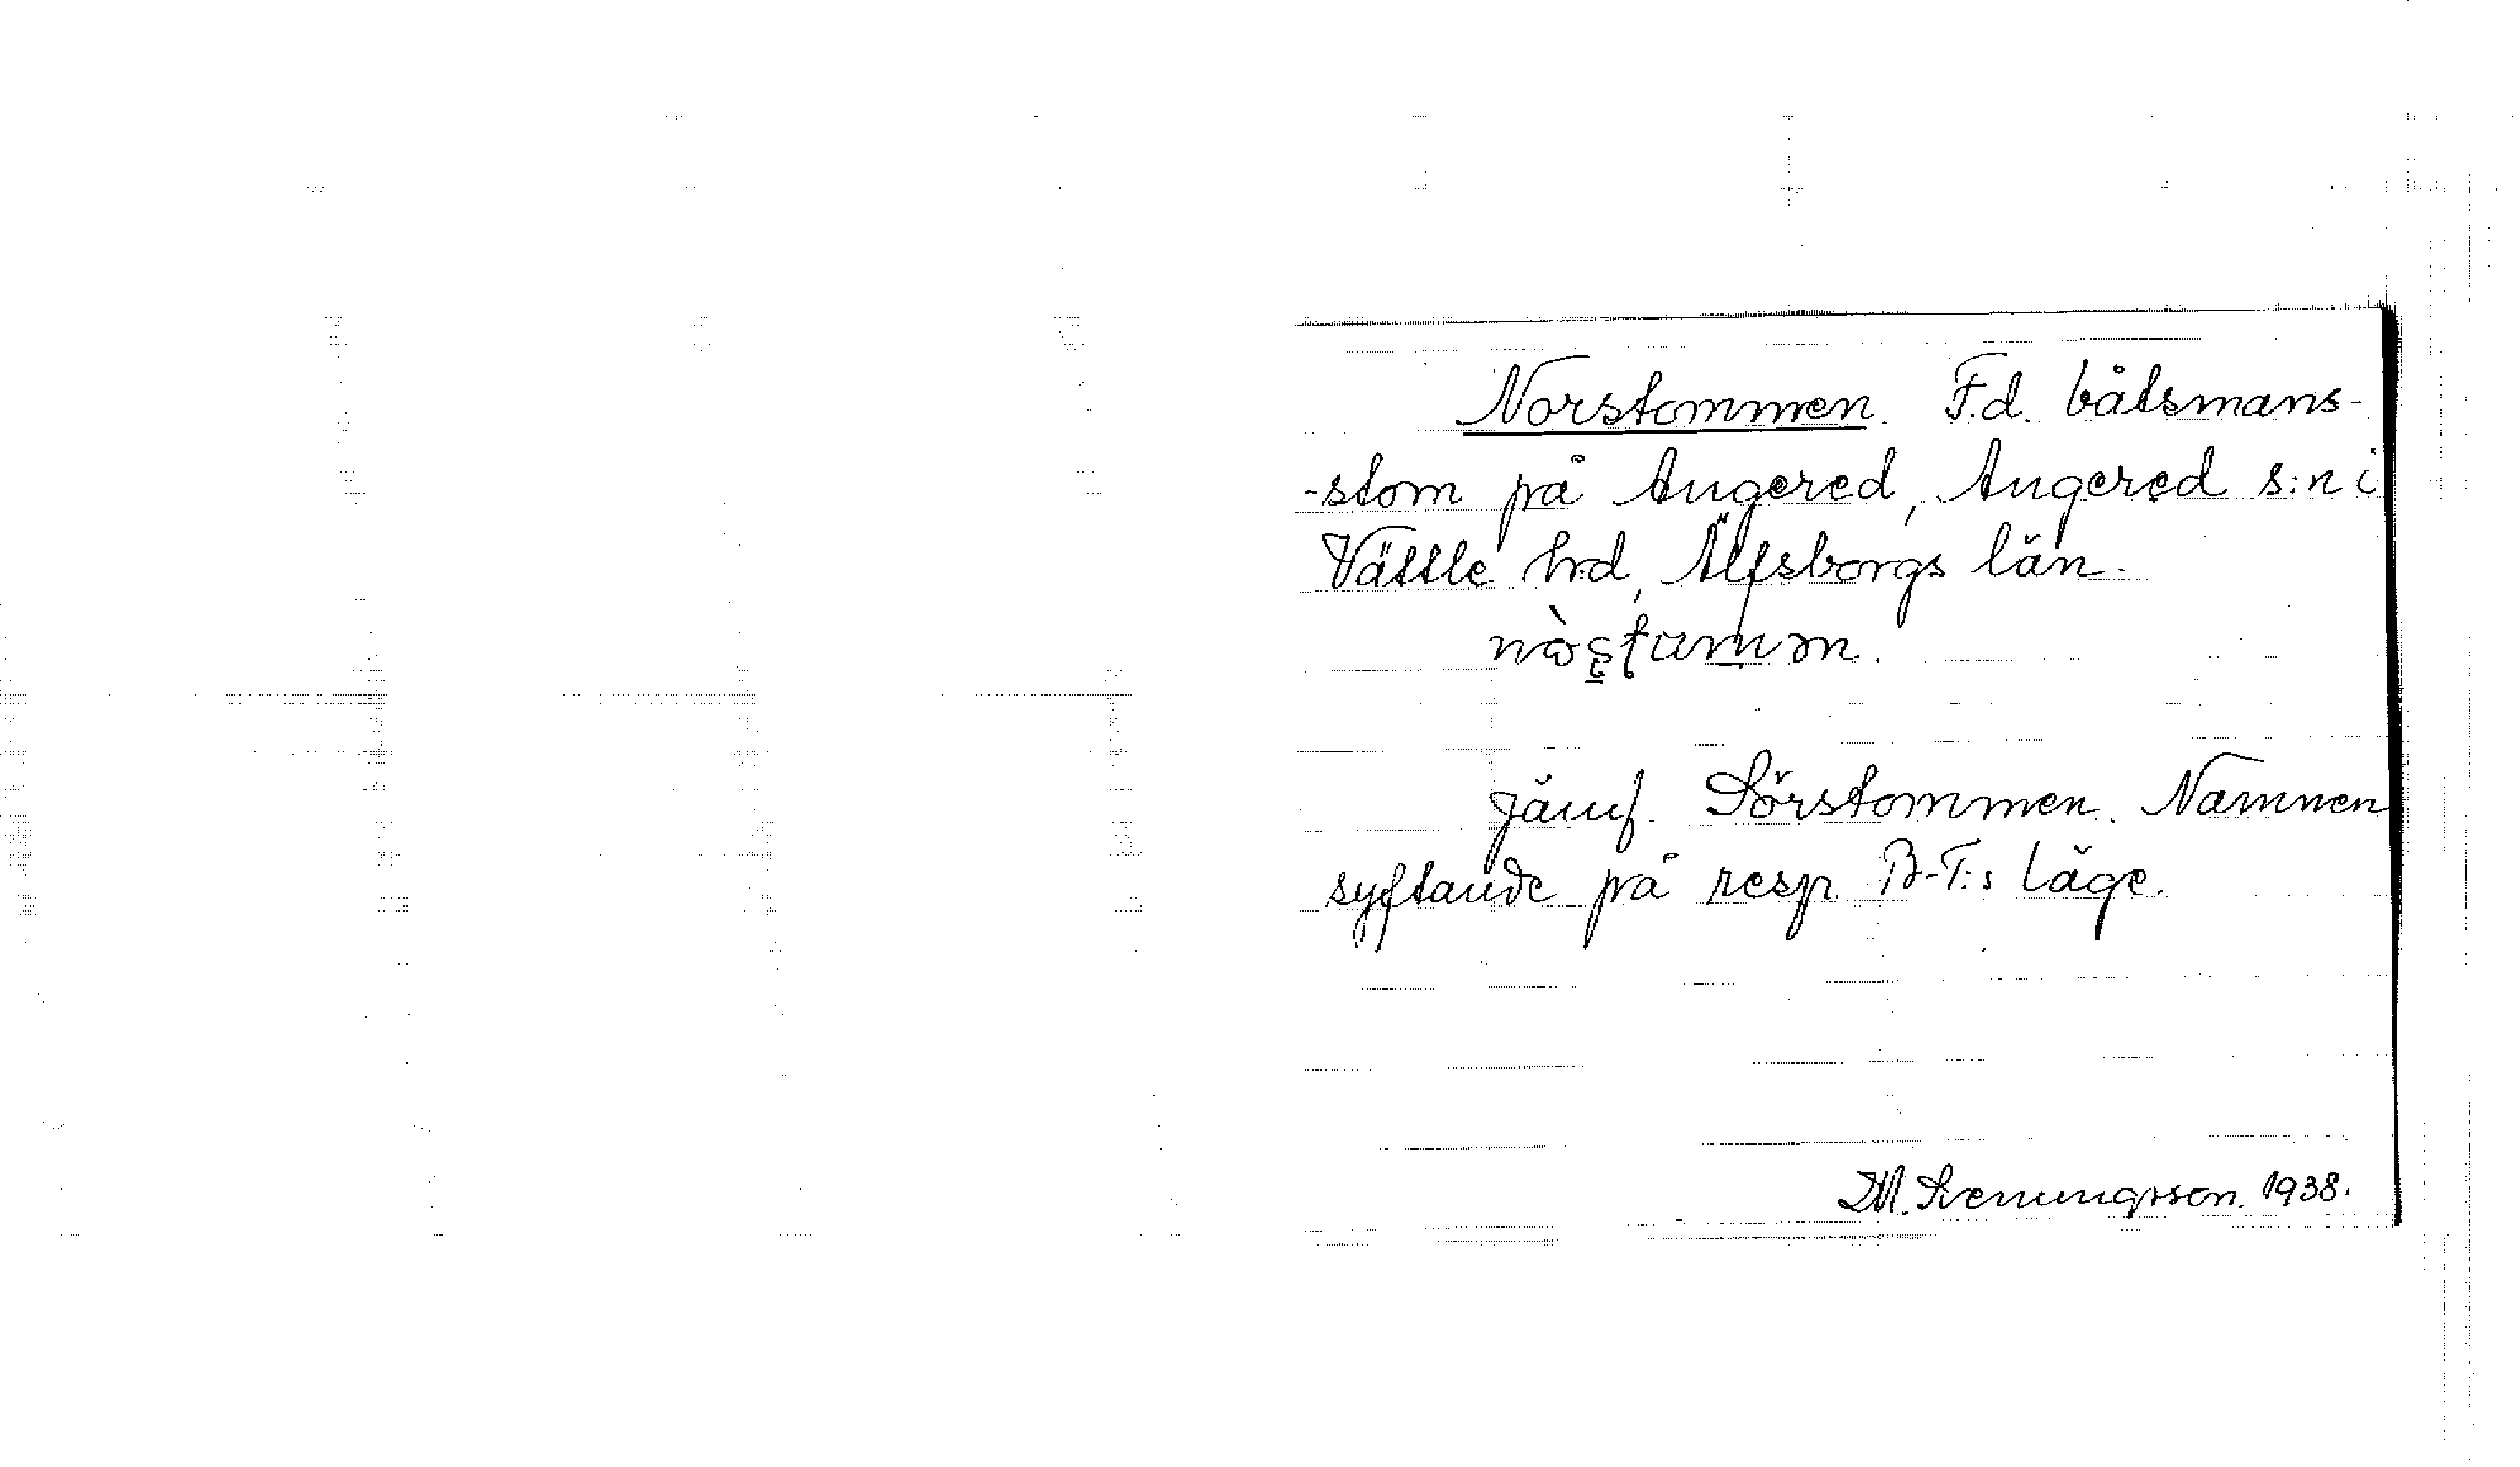 Norstommen. F.d. båtsmans-
-stom på Angered, Angered s:n i
Vättle h:d, Älfsborgs län.
jämf. Sörstommen. Namnen
syftande på resp. B-T:s läge.
M. Svenungsson. 1938.